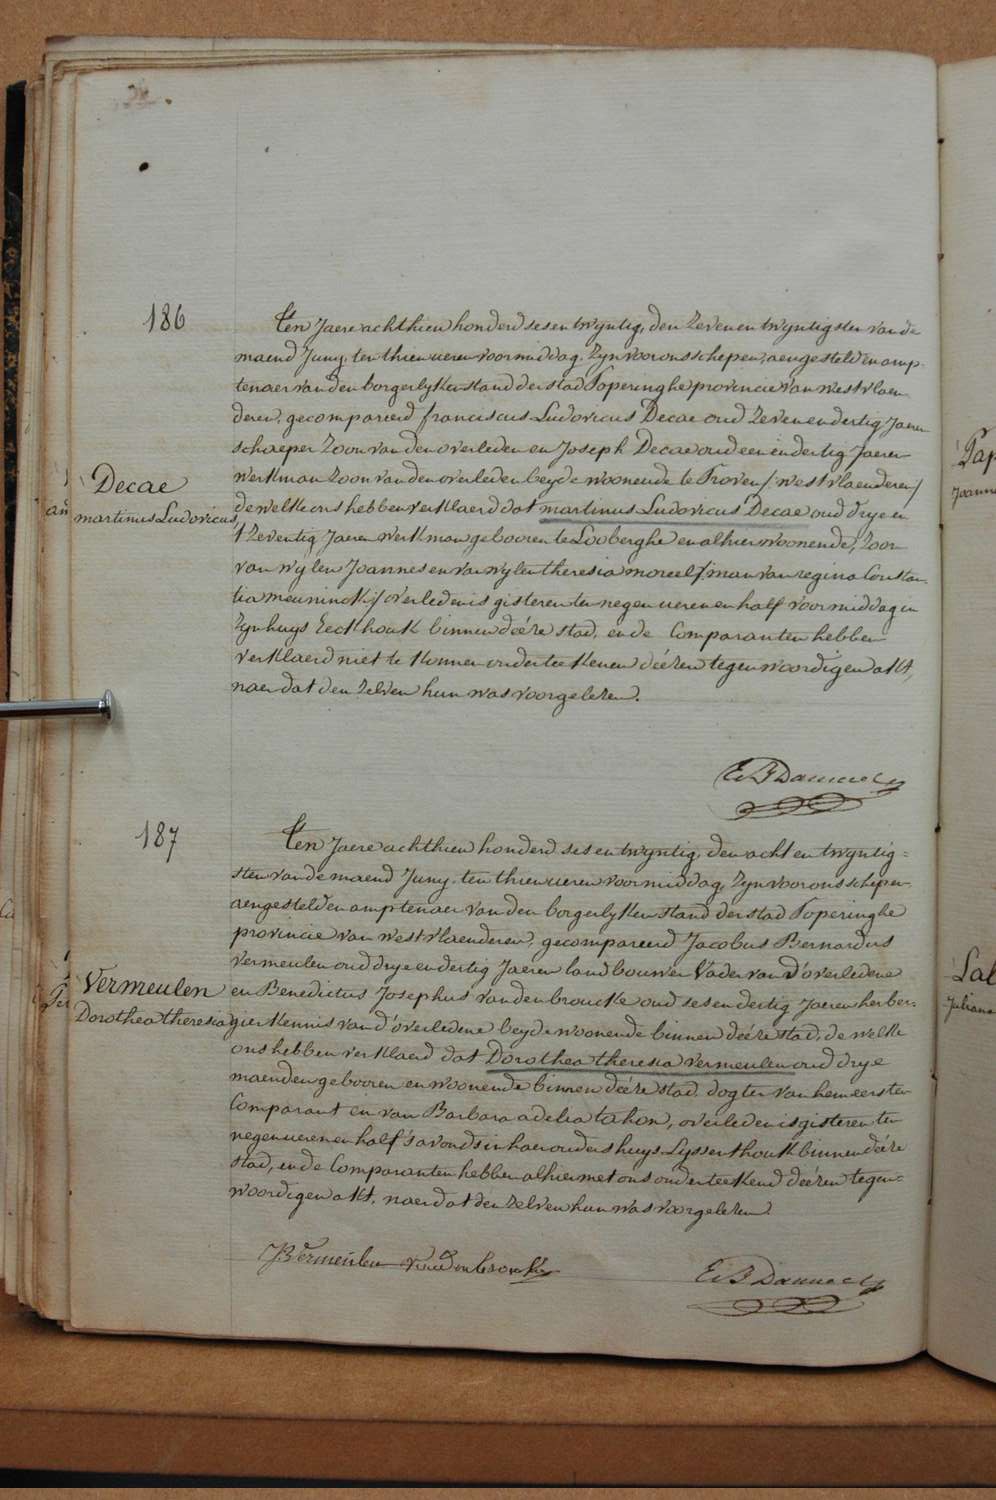 186
Ten Jaere achthien honderd ses en twyntig, den Zeven en twyntigsten van de
maend Juny, ten thien ueren voormiddag, Zyn voor ons schepen, aengestelden amp-
tenaer van den borgerlyken stand der stad Poperinghe provincie van westvlaen-
deren, gecompareerd franciscus Ludovicus Decae oud Zeven en dertig Jaeren
schaeper Zoon van den overleden en Joseph Decae oud een en dertig Jaeren
Decae
werkman Zoon van den overleden beyde woonende te Proven /westvlaenderen/
martinus Ludovicus,
dewelke ons hebben verklaerd dat martinus Ludovicus Decae oud drye en
t'Zeventig Jaeren werkman gebooren te Looberghe en alhier woonende, Zoon
van wylen Joannes en van wylen theresia moreel, man van regina Constan-
tia meuninck, overleden is gisteren ten negen ueren en half voormiddag in
zyn huys Eeckhouk binnen deéze stad, en de Comparanten hebben
verklaerd niet te konnen onderteekenen deézen tegenwoordigen akt,
naer dat den zelven hun was voorgelezen.
187
Ten Jaere achthien honderd ses en twyntig, den acht en twyntig-
sten van de maend Juny, ten thien ueren voormiddag, Zyn voor ons schepen
aengestelden amptenaer van den borgerlyken stand der stad Poperinghe
provincie van westvlaenderen, gecompareerd Jacobus Bernardus
Vermeulen oud drye en dertig Jaeren landbouwer Vader van d'overledene
Vermeulen
en Benedictus Josephus vandenbroucke oud ses en dertig Jaeren herber-
Dorothea theresia
gier kennis van d'overledene beyde woonende binnen deéze stad, de welke
ons hebben verklaerd dat Dorothea theresia vermeulen oud drye
maenden gebooren en woonende binnen deéze stad, dogter van hem eersten
Comparant en van Barbara adelia tahon, overleden is gisteren ten
negen ueren en half 's avonds in haer ouders huys Lyssenthouk binnen deéze
stad, en de Comparanten hebben alhier met ons onderteekend deézen tegen-
woordigen akt, naer dat den zelven hun was voorgelezen.
JB Vermeulen vandenbroucke